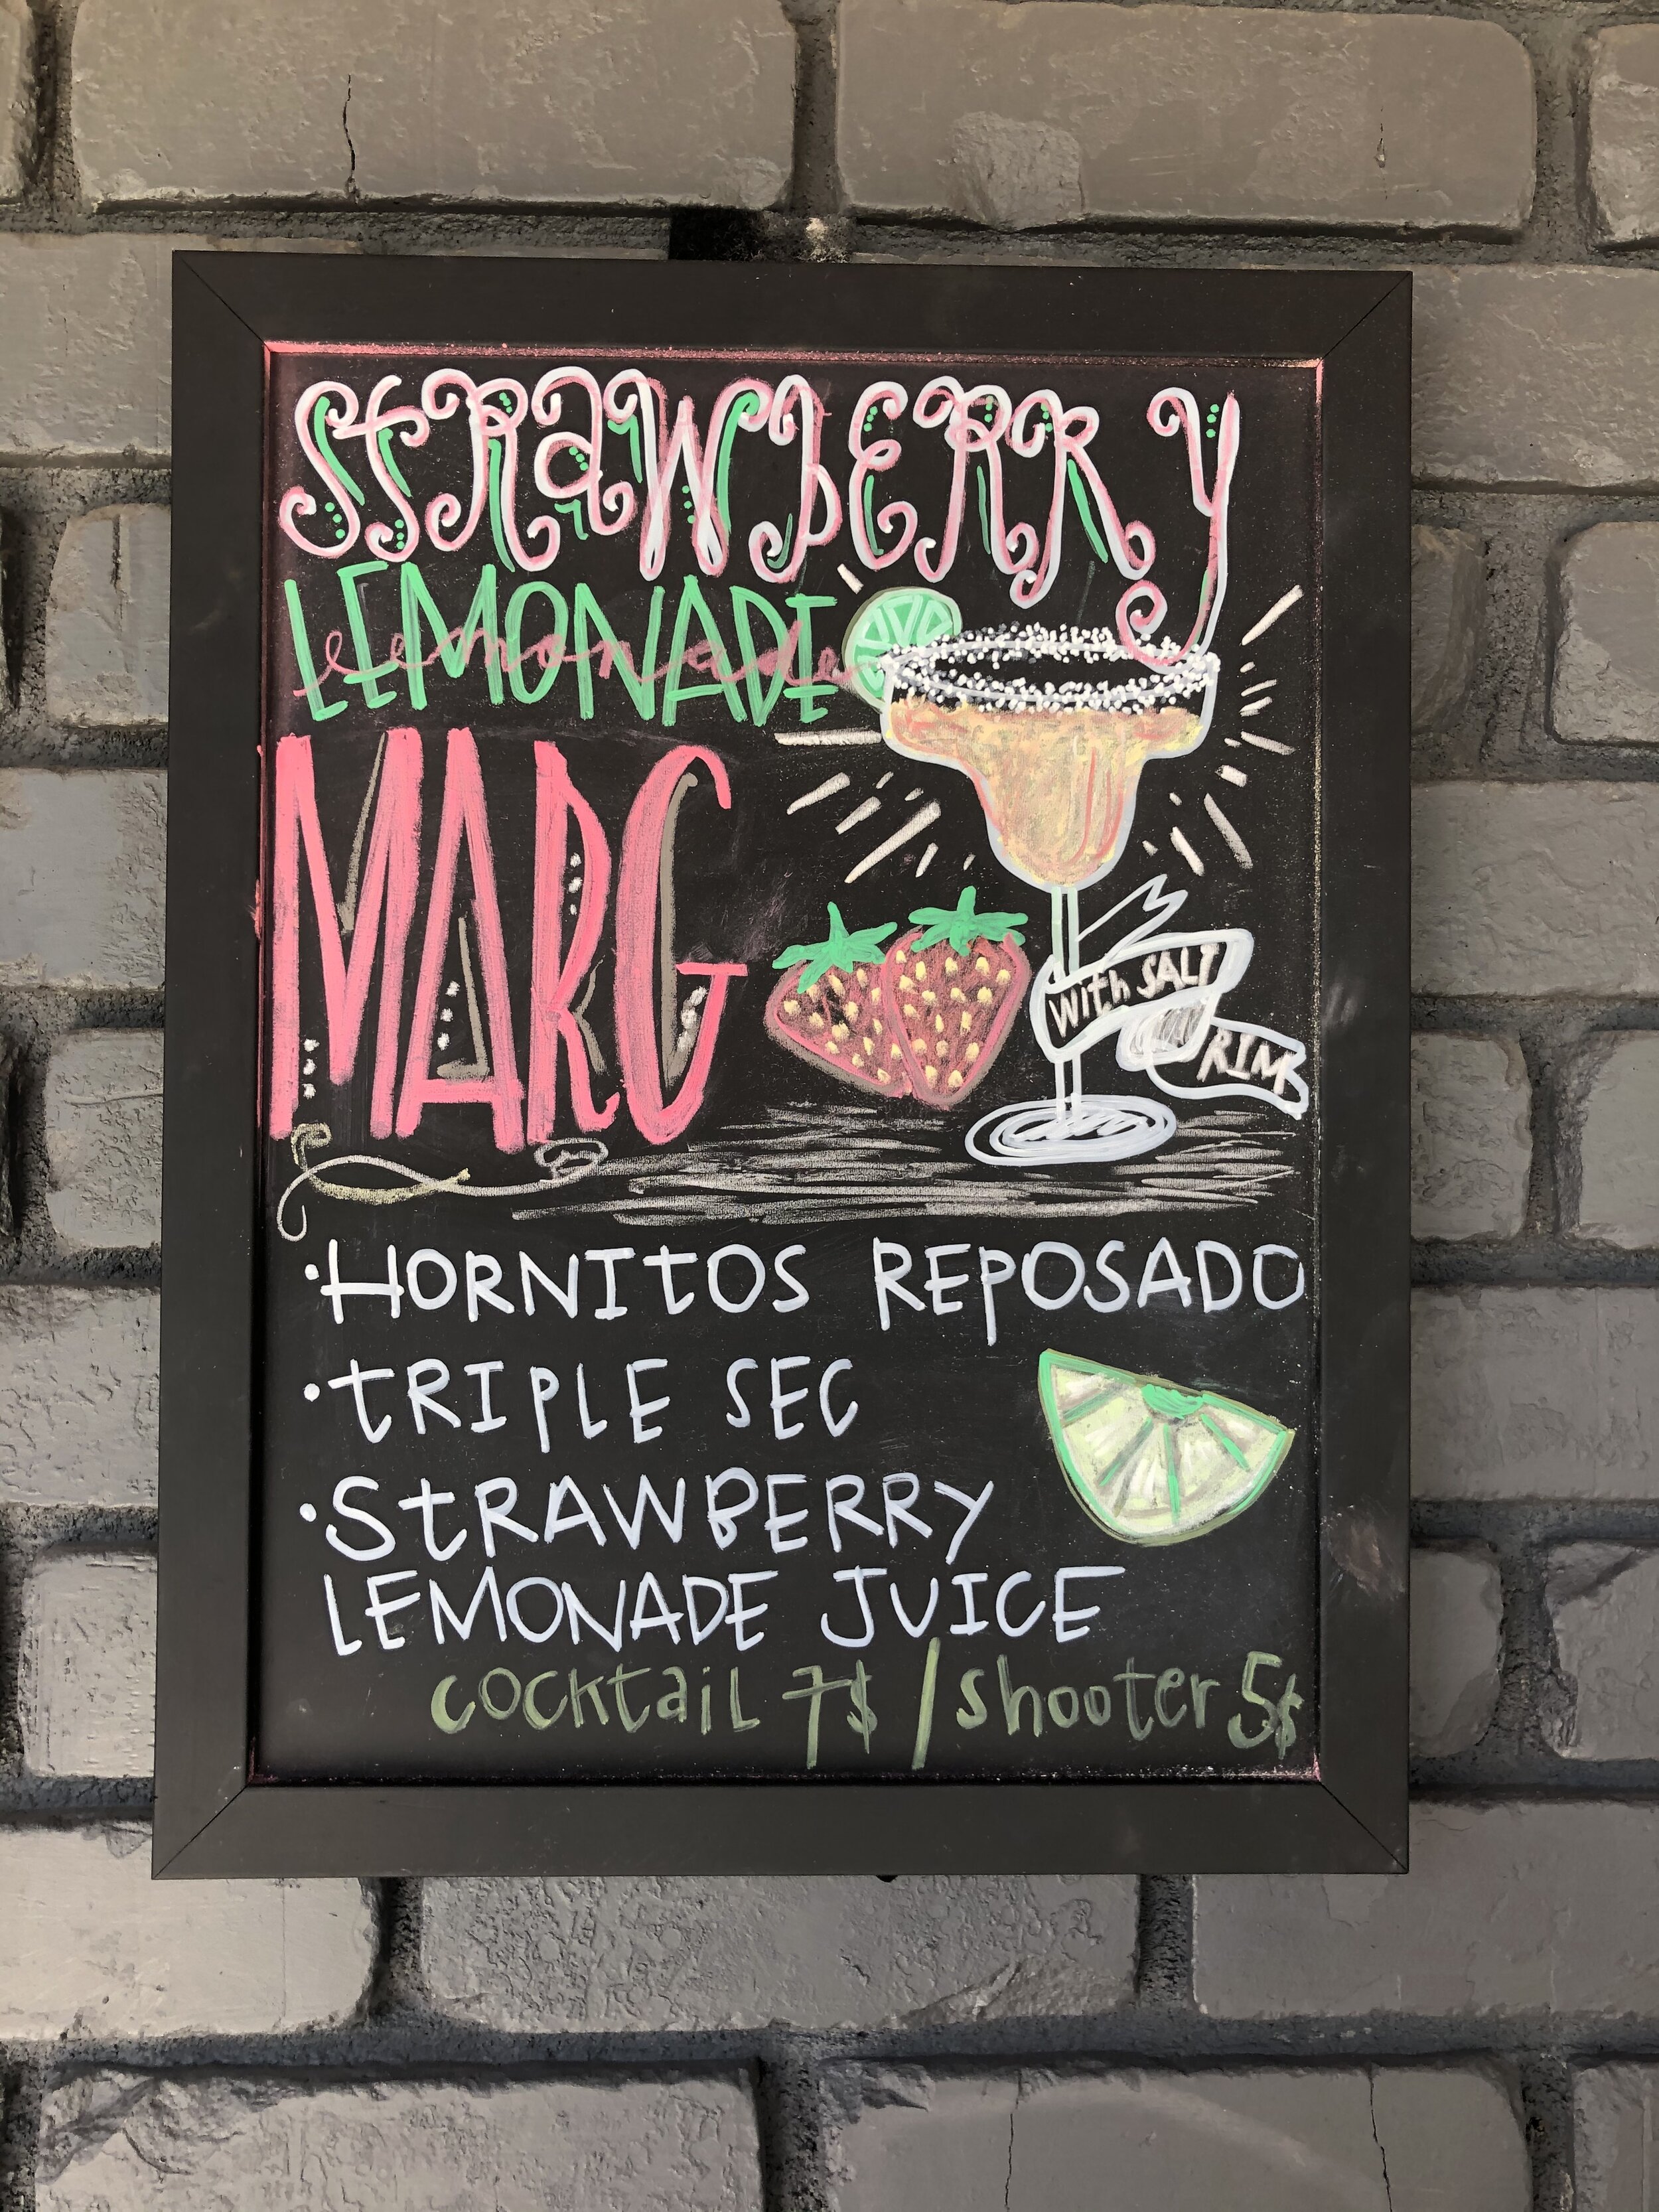 StRaWbERRy
LEMONADE
lemonade
MARG
With SALT
RIM
·HORNITOS REPOSADO
·tRIPLE SEC
·StRAWBERRY
LEMONADE JUICE
cocktail 7$ / shooter 5$